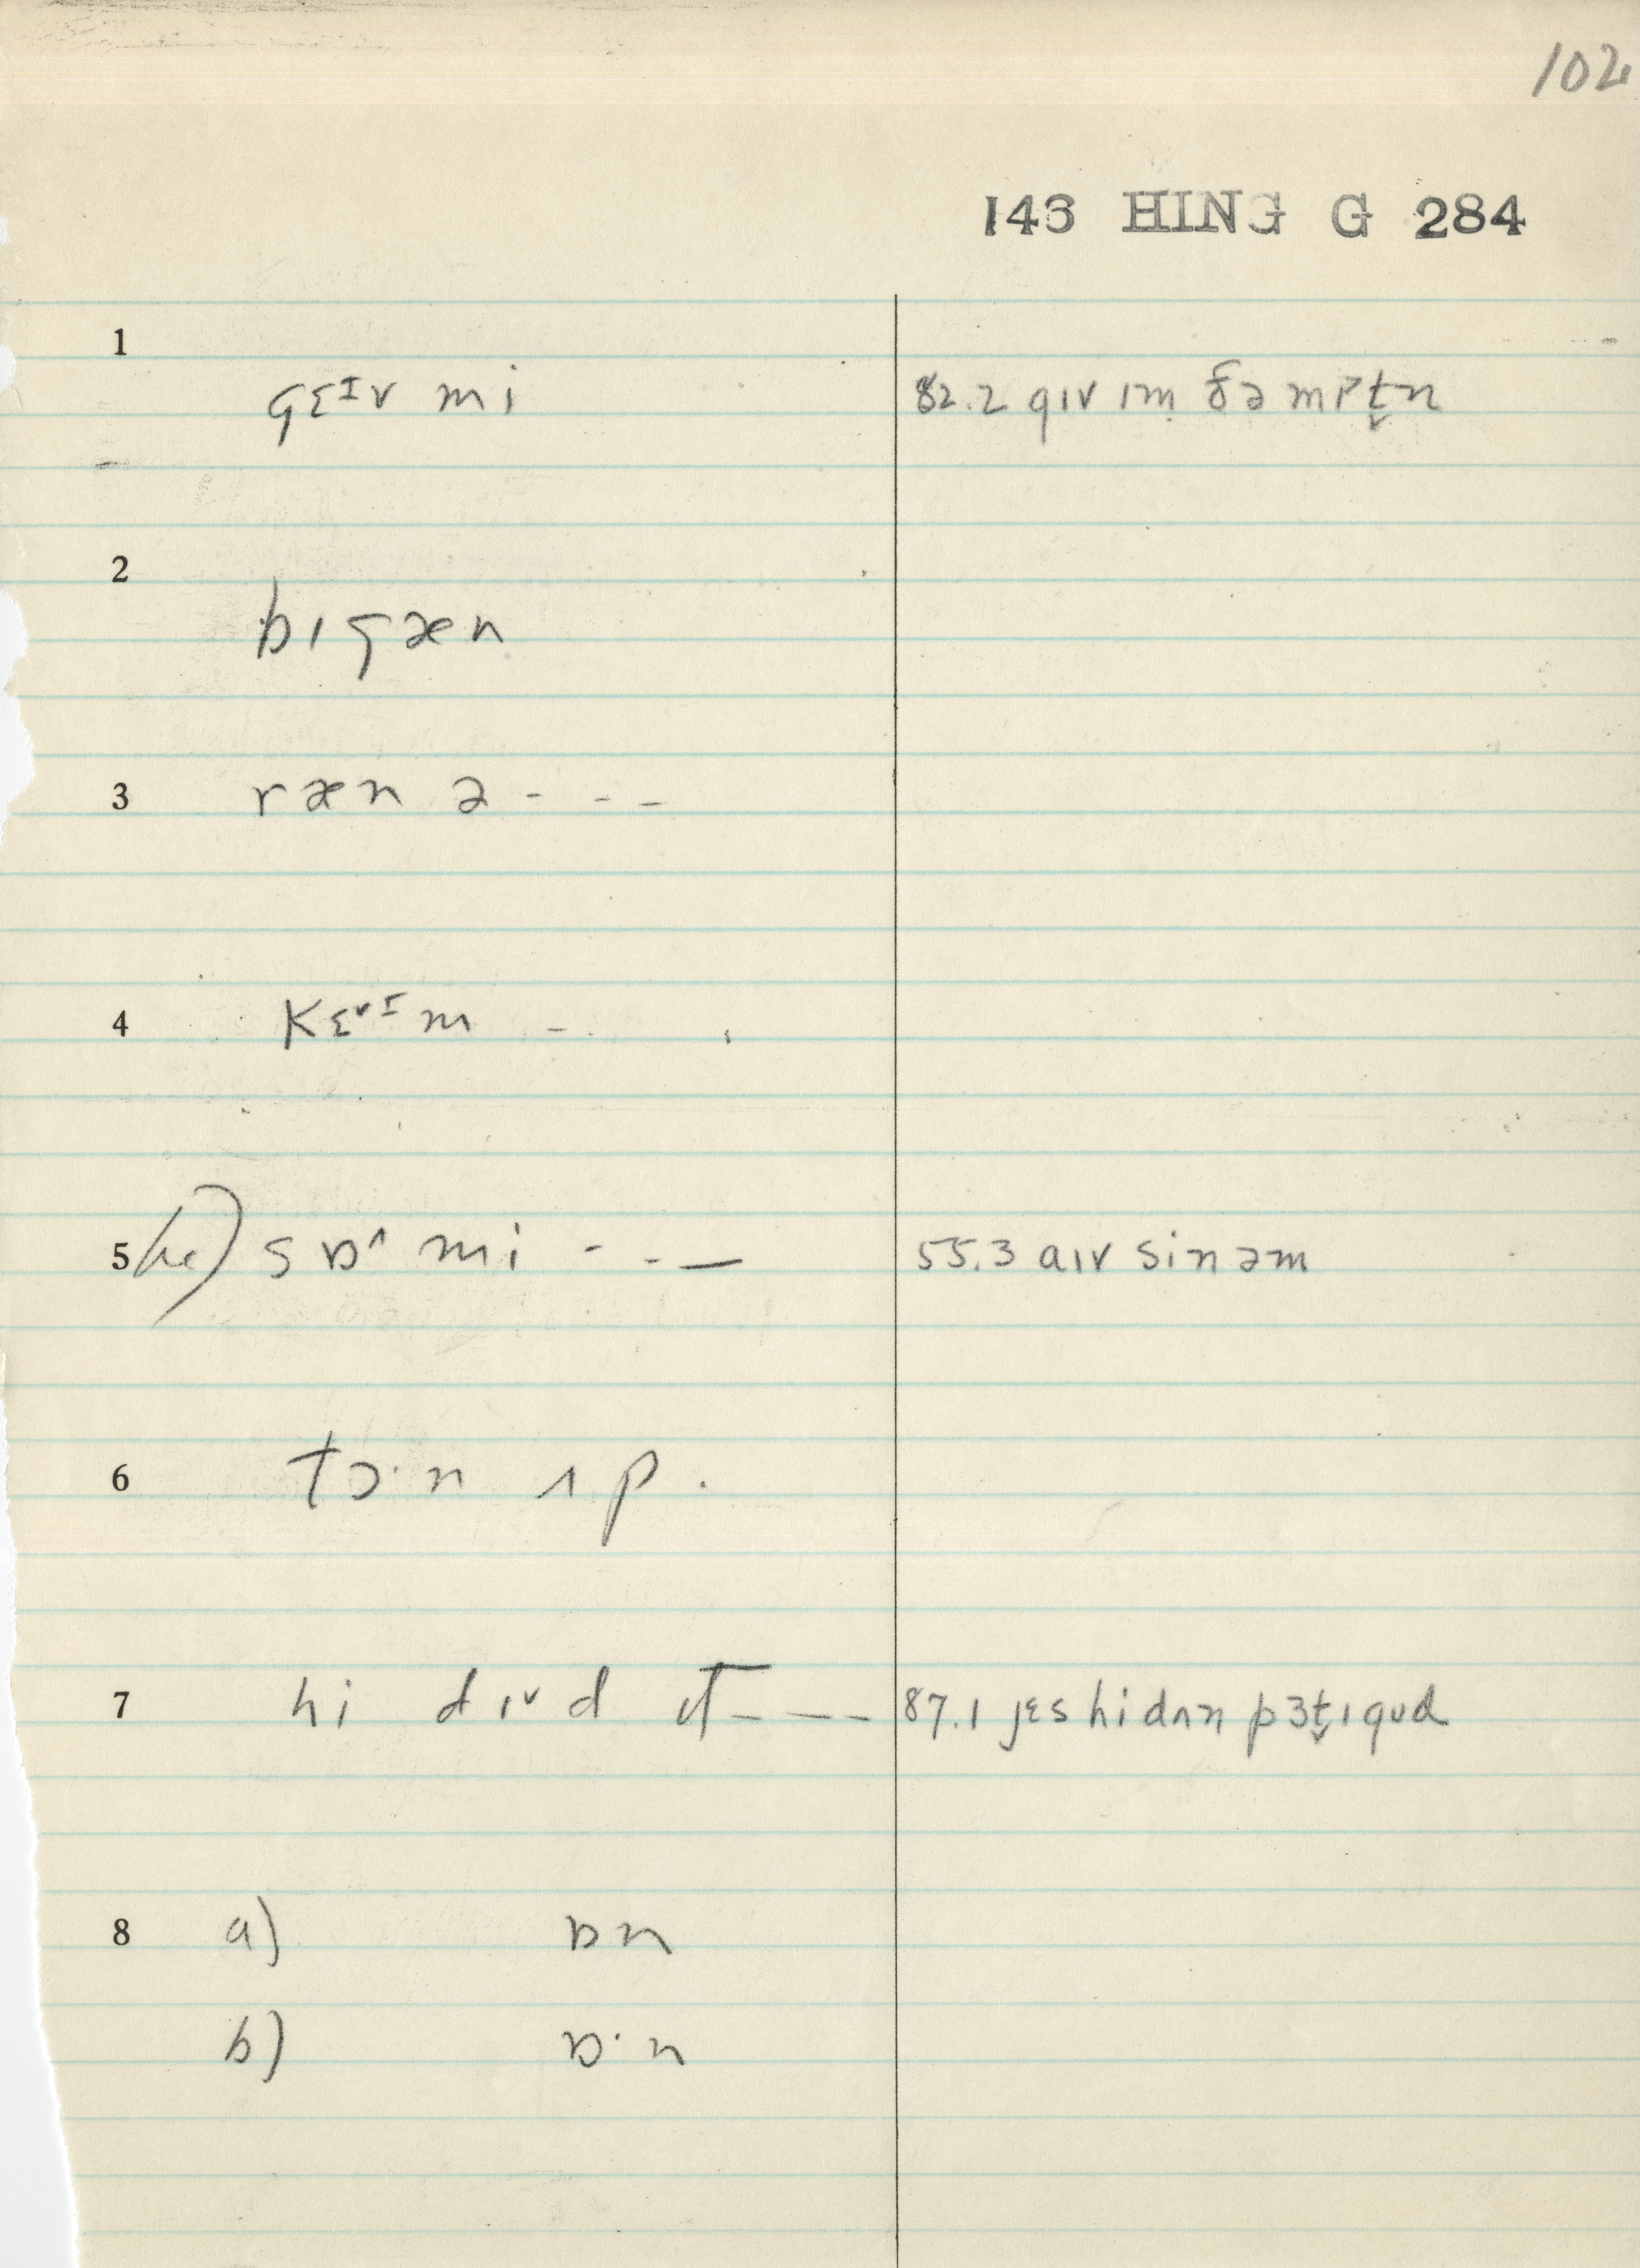 102
143 HING G 284
1
gɛᴵv mi
82.2 gɪv ɪm ðə mɪt̬n
2
bɪgæn
3 ræn ə - - -
4 kɛ˅ᴵm -
5 (he) sɒ^ mi - - —
55.3 aɪv sin əm
6 tɔ·n ʌp.
7 hi dɪ˅d ɪt - - -
87.1 jɛs hi dʌn pɜt̬ɪ gʊd
8 a) ɒn
b) ɒ·n